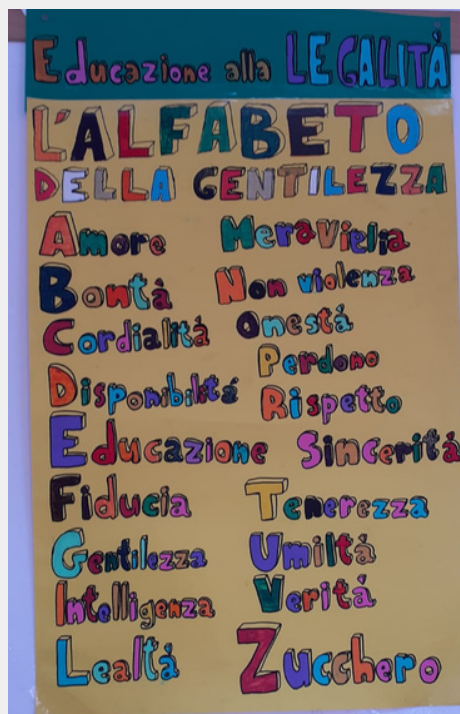 Educazione alla LEGALITÀ
L'ALFABETO
DELLA GENTILEZZA
Amore
Bontà
Cordialità
Disponibilità
Educazione
Fiducia
Gentilezza
Intelligenza
Lealtà
Meraviglia
Non violenza
Onestà
Perdono
Rispetto
Sincerità
Tenerezza
Umiltà
Verità
Zucchero